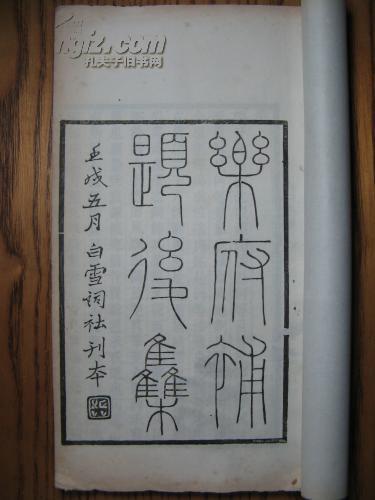 樂府補
題後集
壬戌五月白雪詞社刊本
孔夫子旧书网